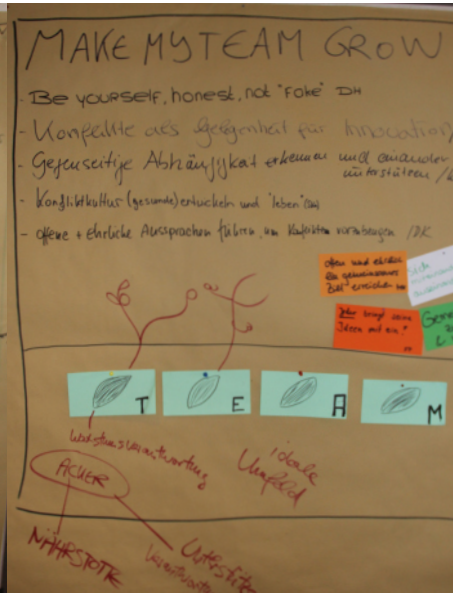 MAKE MY TEAM GROW
- Be yourself, honest, not "Fake" DH
- Konflikte als Gelegenheit für Innovation/
- Gegenseitige Abhängigkeit erkennen und einander
unterstützen /
- Konfliktkultur (gesunde) entwickeln und "leben"
- offene + ehrliche Aussprachen führen, um Konflikten vorzubeugen /DK
offen und ehrlich
ein gemeinsames
Ziel erreichen
Jeder bringt seine
Ideen mit ein!
T E A M
ideale
Umfeld
ACKER
NÄHRSTOFFE